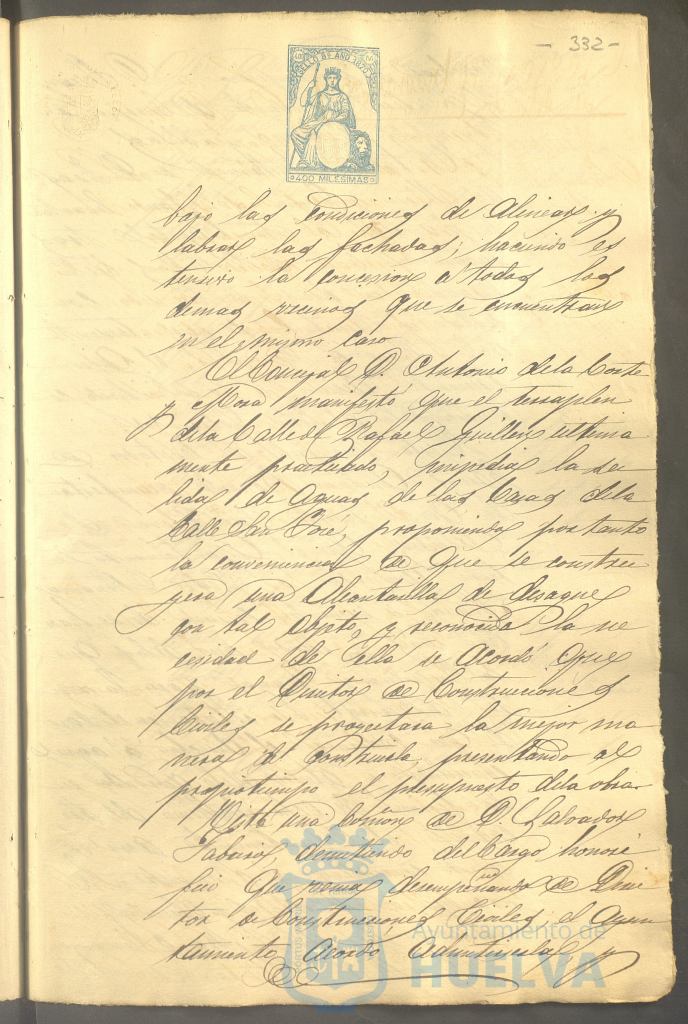 - 332 -
SELLO 8º AÑO 1870
400 MILESIMAS
bajo las condiciones de alinear y
labrar las fachadas; haciendo es
tensivo la concesion a todos los
demas vecinos que se encuentran
en el mismo caso
El Concejal D. Antonio de la Corte
y Mora manifestó que el terraplen
dela Calle de Rafael Guillen ultima
mente practicado, impedia la sa
lida de aguas de las Casas dela
Calle San José, proponiendo por tanto
la conveniencia de que se constru
yera una Alcantarilla de desague
con tal objeto, y reconocida la ne
cesidad de ella se acordó que
por el Director de Construcciones
Civiles se proyectara la mejor ma
nera de construirla, presentando al
propio tiempo el presupuesto dela obra
Vista una Comon de D. Salvador
demitiendo del Cargo honori
fico que venia desempeñando de Direc
tor de Construcciones Civiles el Ayun
tamiento acordó admitirsela y
Ayuntamiento de
HUELVA